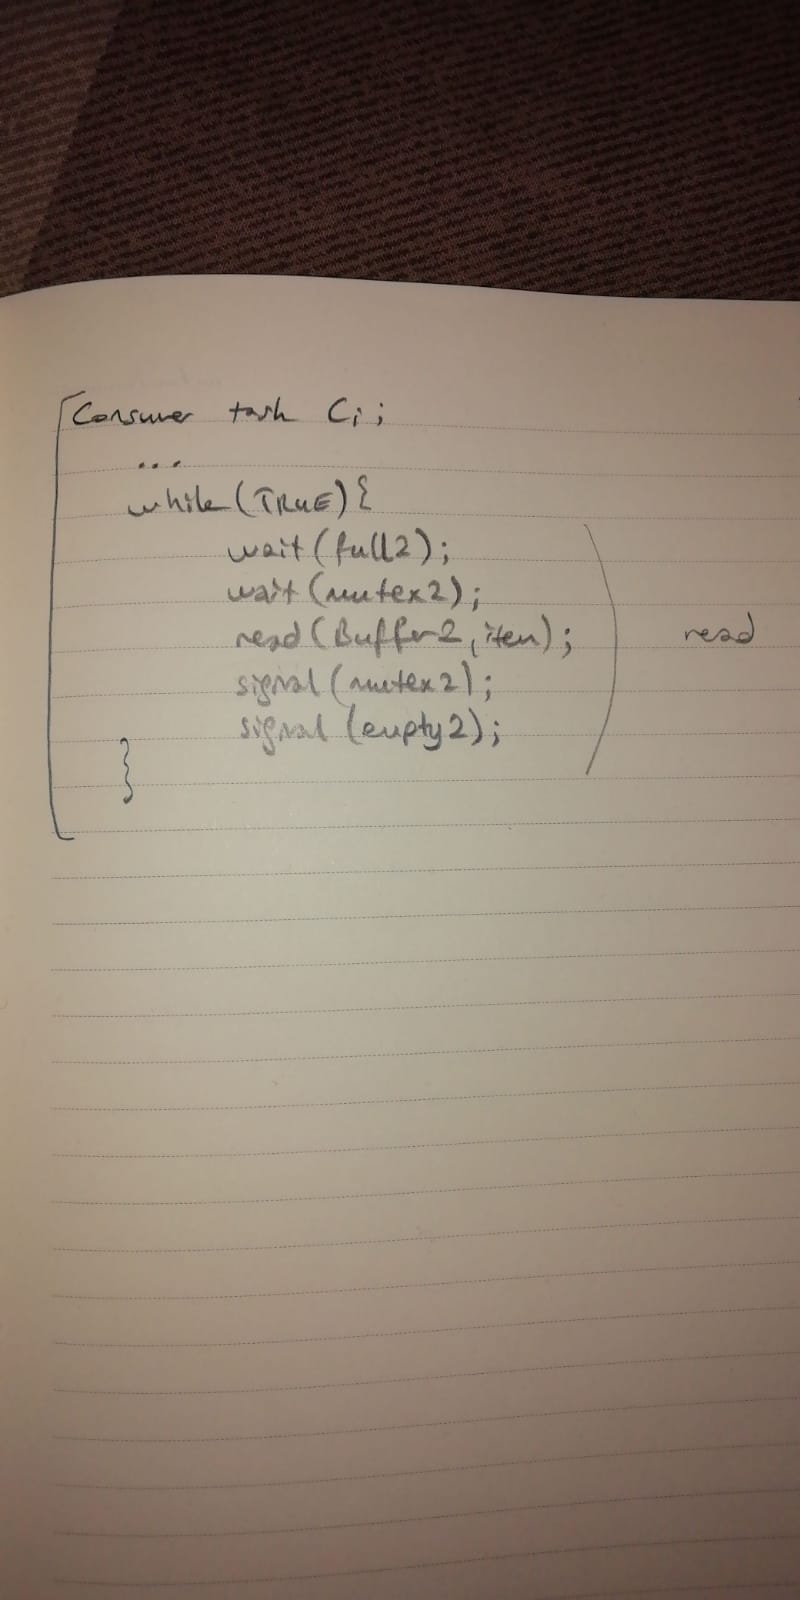 Consumer task Ci;
...
while(TRUE){
wait(full2);
wait(mutex2);
read(Buffer2, item);
signal(mutex2);
signal(empty2);
}
read